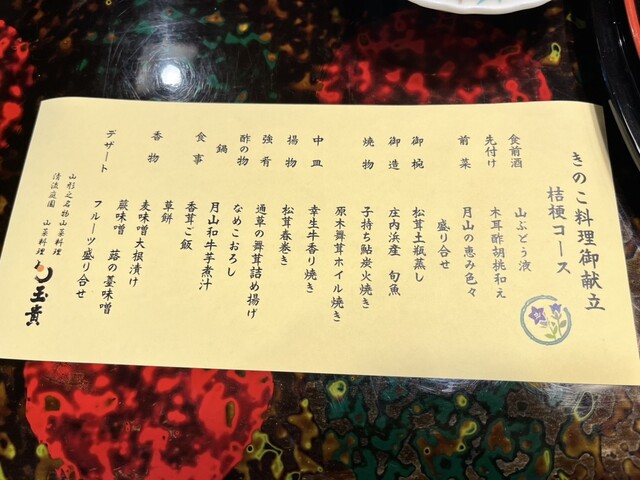 きのこ料理御献立
桔梗コース
食前酒 山ぶどう液
先付け 木耳酢胡桃和え
前菜 月山の恵み色々
盛り合せ
御椀 松茸土瓶蒸し
御造 庄内浜産 旬魚
焼物 子持ち鮎炭火焼き
原木舞茸ホイル焼き
中皿 幸生牛香り焼き
揚物 松茸春巻き
強肴 通草の舞茸詰め揚げ
酢の物 なめこおろし
鍋 月山和牛芋煮汁
食事 香茸ご飯
草餅
香物 麦味噌大根漬け
蕨味噌 蕗の薹味噌
デザート フルーツ盛り合せ
山形之名物山菜料理
清流庭園 山菜料理
玉貴